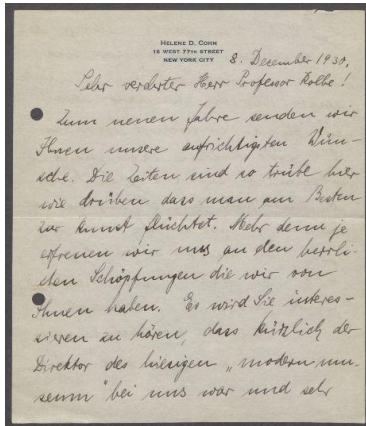 HELENE D. COHN
15 WEST 77TH STREET
NEW YORK CITY
8. Dezember 1930.
Sehr verehrter Herr Professor Kolbe!
Zum neuen Jahre senden wir
Ihnen unsere aufrichtigsten Wün-
sche. Die Zeiten sind so trübe hier
wie drüben dass man am Besten
zur Kunst flüchtet. Mehr denn je
erfreuen wir uns an den herrli-
chen Schöpfungen die wir von
Ihnen haben. Es wird Sie interes-
sieren zu hören, dass kürzlich der
Direktor des hiesigen „modern mu-
seum" bei uns war und sehr